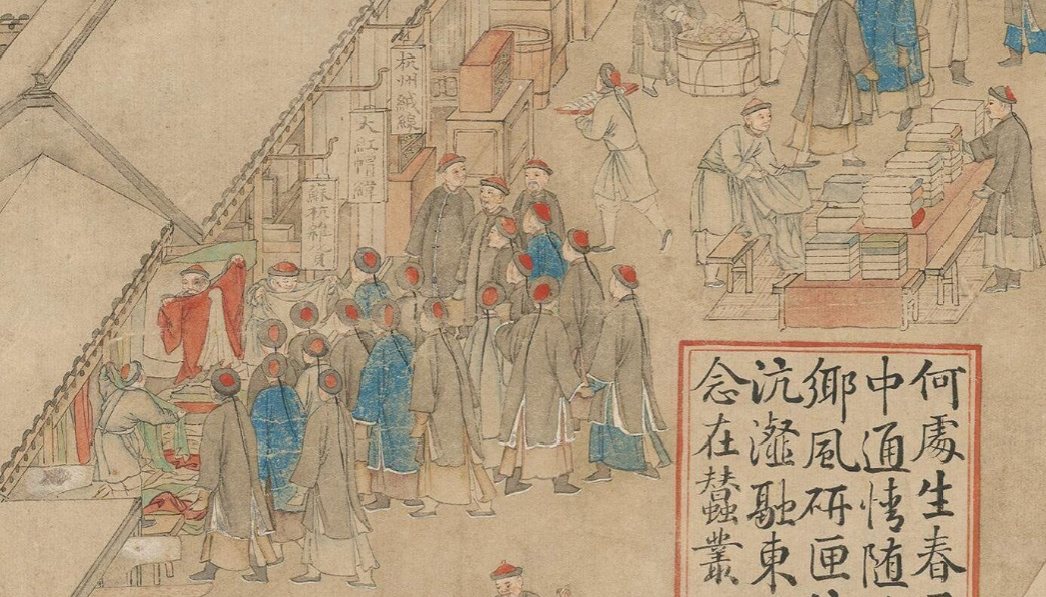 何處生春
中通情随
鄉風研匣
沆瀣融東
念在蠶叢
杭州絨線
大紅帽緯
蘇杭雜貨